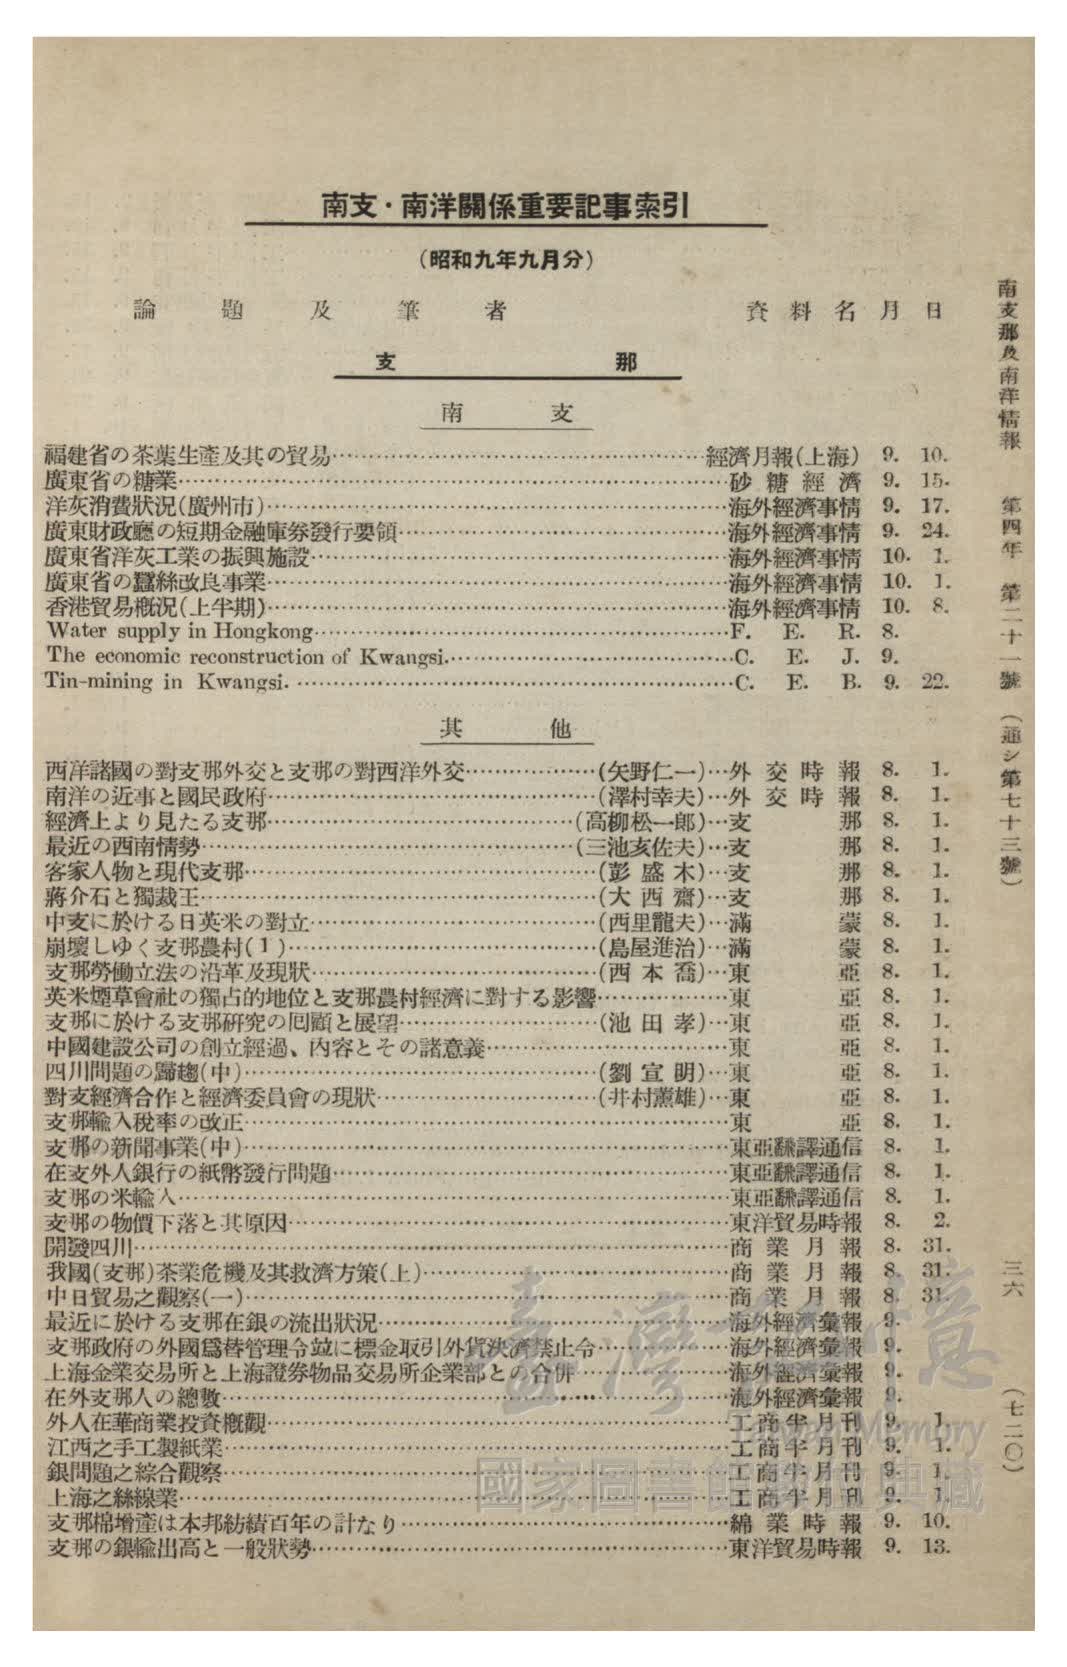 南支・南洋關係重要記事索引
(昭和九年九月分)
論題及筆者 資料名 月 日
支那
南支
福建省の茶葉生產及其の貿易……經濟月報(上海) 9. 10.
廣東省の糖業……砂糖經濟 9. 15.
洋灰消費狀況(廣州市)……海外經濟事情 9. 17.
廣東財政廳の短期金融庫劵發行要領……海外經濟事情 9. 24.
廣東省洋灰工業の振興施設……海外經濟事情 10. 1.
廣東省の蠶絲改良事業……海外經濟事情 10. 1.
香港貿易槪況(上半期)……海外經濟事情 10. 8.
Water supply in Hongkong……F. E. R. 8.
The economic reconstruction of Kwangsi……C. E. J. 9.
Tin-mining in Kwangsi……C. E. B. 9. 22.
其他
西洋諸國の對支那外交と支那の對西洋外交……(矢野仁一)…外交時報 8. 1.
南洋の近事と國民政府……(澤村幸夫)…外交時報 8. 1.
經濟上より見たる支那……(高柳松一郎)…支那 8. 1.
最近の西南情勢……(三池亥佐夫)…支那 8. 1.
客家人物と現代支那……(彭盛木)…支那 8. 1.
蔣介石と獨裁王……(大西齋)…支那 8. 1.
中支に於ける日英米の對立……(西里龍夫)…滿蒙 8. 1.
崩壞しゆく支那農村(1)……(島屋進治)…滿蒙 8. 1.
支那勞働立法の沿革及現狀……(西本喬)…東亞 8. 1.
英米煙草會社の獨占的地位と支那農村經濟に對する影響……東亞 8. 1.
支那に於ける支那硏究の囘顧と展望……(池田孝)…東亞 8. 1.
中國建設公司の創立經過、內容とその諸意義……東亞 8. 1.
四川問題の歸趨(中)……(劉宣明)…東亞 8. 1.
對支經濟合作と經濟委員會の現狀……(井村薰雄)…東亞 8. 1.
支那輸入稅率の改正……東亞 8. 1.
支那の新聞事業(中)……東亞飜譯通信 8. 1.
在支外人銀行の紙幣發行問題……東亞飜譯通信 8. 1.
支那の米輸入……東亞飜譯通信 8. 1.
支那の物價下落と其原因……東洋貿易時報 8. 2.
開發四川……商業月報 8. 31.
我國(支那)茶業危機及其救濟方策(上)……商業月報 8. 31.
中日貿易之觀察(一)……商業月報 8. 31.
最近に於ける支那在銀の流出狀況……海外經濟彙報 9.
支那政府の外國爲替管理令竝に標金取引外貨決濟禁止令……海外經濟彙報 9.
上海金業交易所と上海證券物品交易所企業部との合併……海外經濟彙報 9.
在外支那人の總數……海外經濟彙報 9.
外人在華商業投資槪觀……工商半月刊 9. 1.
江西之手工製紙業……工商半月刊 9. 1.
銀問題之綜合觀察……工商半月刊 9. 1.
上海之絲線業……工商半月刊 9. 1.
支那棉增產は本邦紡績百年の計なり……綿業時報 9. 10.
支那の銀輸出高と一般狀勢……東洋貿易時報 9. 13.
南支那及南洋情報 第四年 第二十一號 (通シ第七十三號)
三六
(七二〇)
臺灣記憶
Taiwan Memory
國家圖書館數位典藏